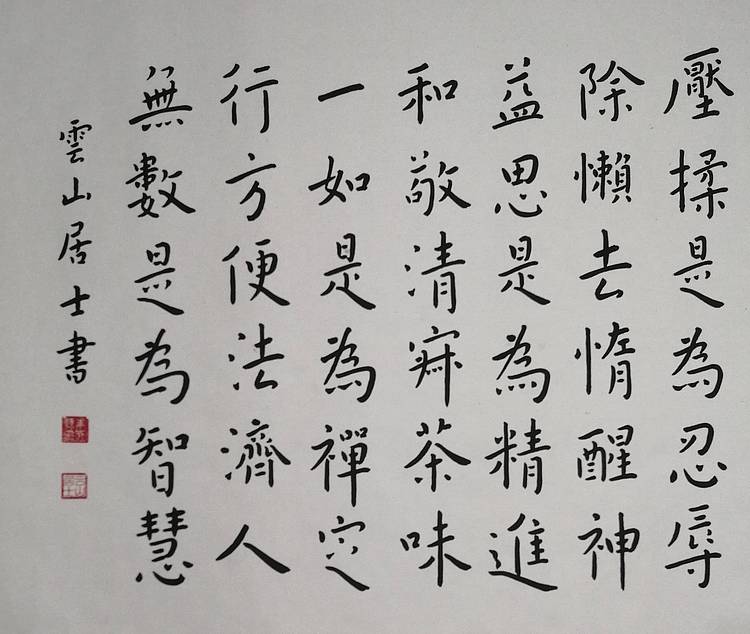 壓揉是為忍辱
除懶去惰醒神
益思是為精進
和敬清寂茶味
一如是為禪定
行方便法濟人
無數是為智慧
雲山居士書